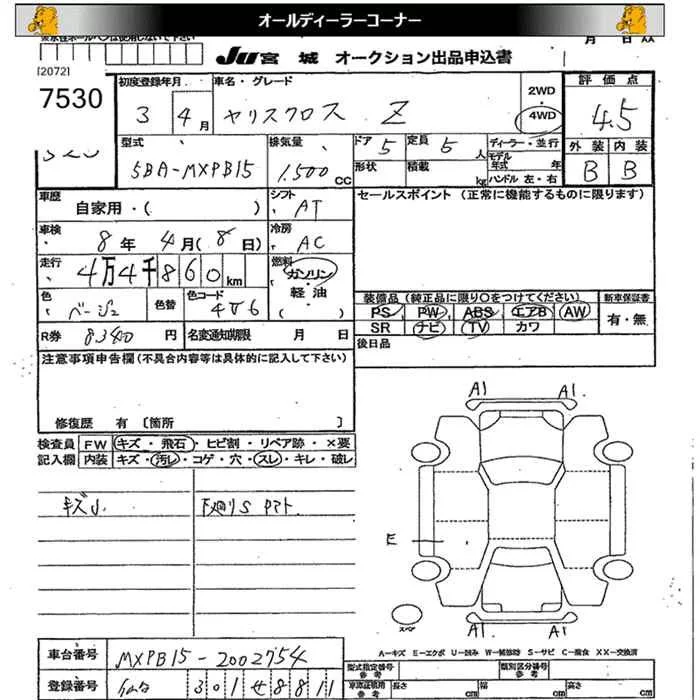 オールディーラーコーナー
※水性ボールペンは使用しないで下さい
月 日 AA
[2072]
JU宮城 オークション出品申込書
7530
初度登録年月 車名・グレード 2WD 4WD 評価点
3 4月 ヤリスクロス Z 4.5
型式 排気量 ドア 定員 ディーラー・並行 外装 内装
5BA-MXPB15 1,500cc 5 5人 モデル年式 年 B B
形状 積載 kg ハンドル 左・右
車歴 自家用・( ) シフト AT セールスポイント (正常に機能するものに限ります)
車検 8年 4月(8日) 冷房 AC
走行 4万4千860km 燃料 ガソリン・軽油・( )
色 ベージュ 色替 色コード 4V6
装備品 (純正品に限り○をつけてください) 新車保証書
PS PW ABS エアB AW 有・無
SR ナビ TV カワ
R券 8340円 名変通知期限 月 日 後日品
注意事項申告欄 (不具合内容等は具体的に記入して下さい)
修復歴 有 〔箇所 〕
検査員 FW キズ・飛石・ヒビ割・リペア跡・×要
記入欄 内装 キズ・汚レ・コゲ・穴・スレ・キレ・破レ
A1 A1
キズ小 下廻りS
E
A1 A1
スペア
A-キズ E-エクボ U-凹み W-補修跡 S-サビ C-腐食 XX-交換済
車台番号 MXPB15-2002754
型式指定番号 類別区分番号
登録番号 301 せ 8811
車両証積用参考 長さ cm 幅 cm 高さ cm